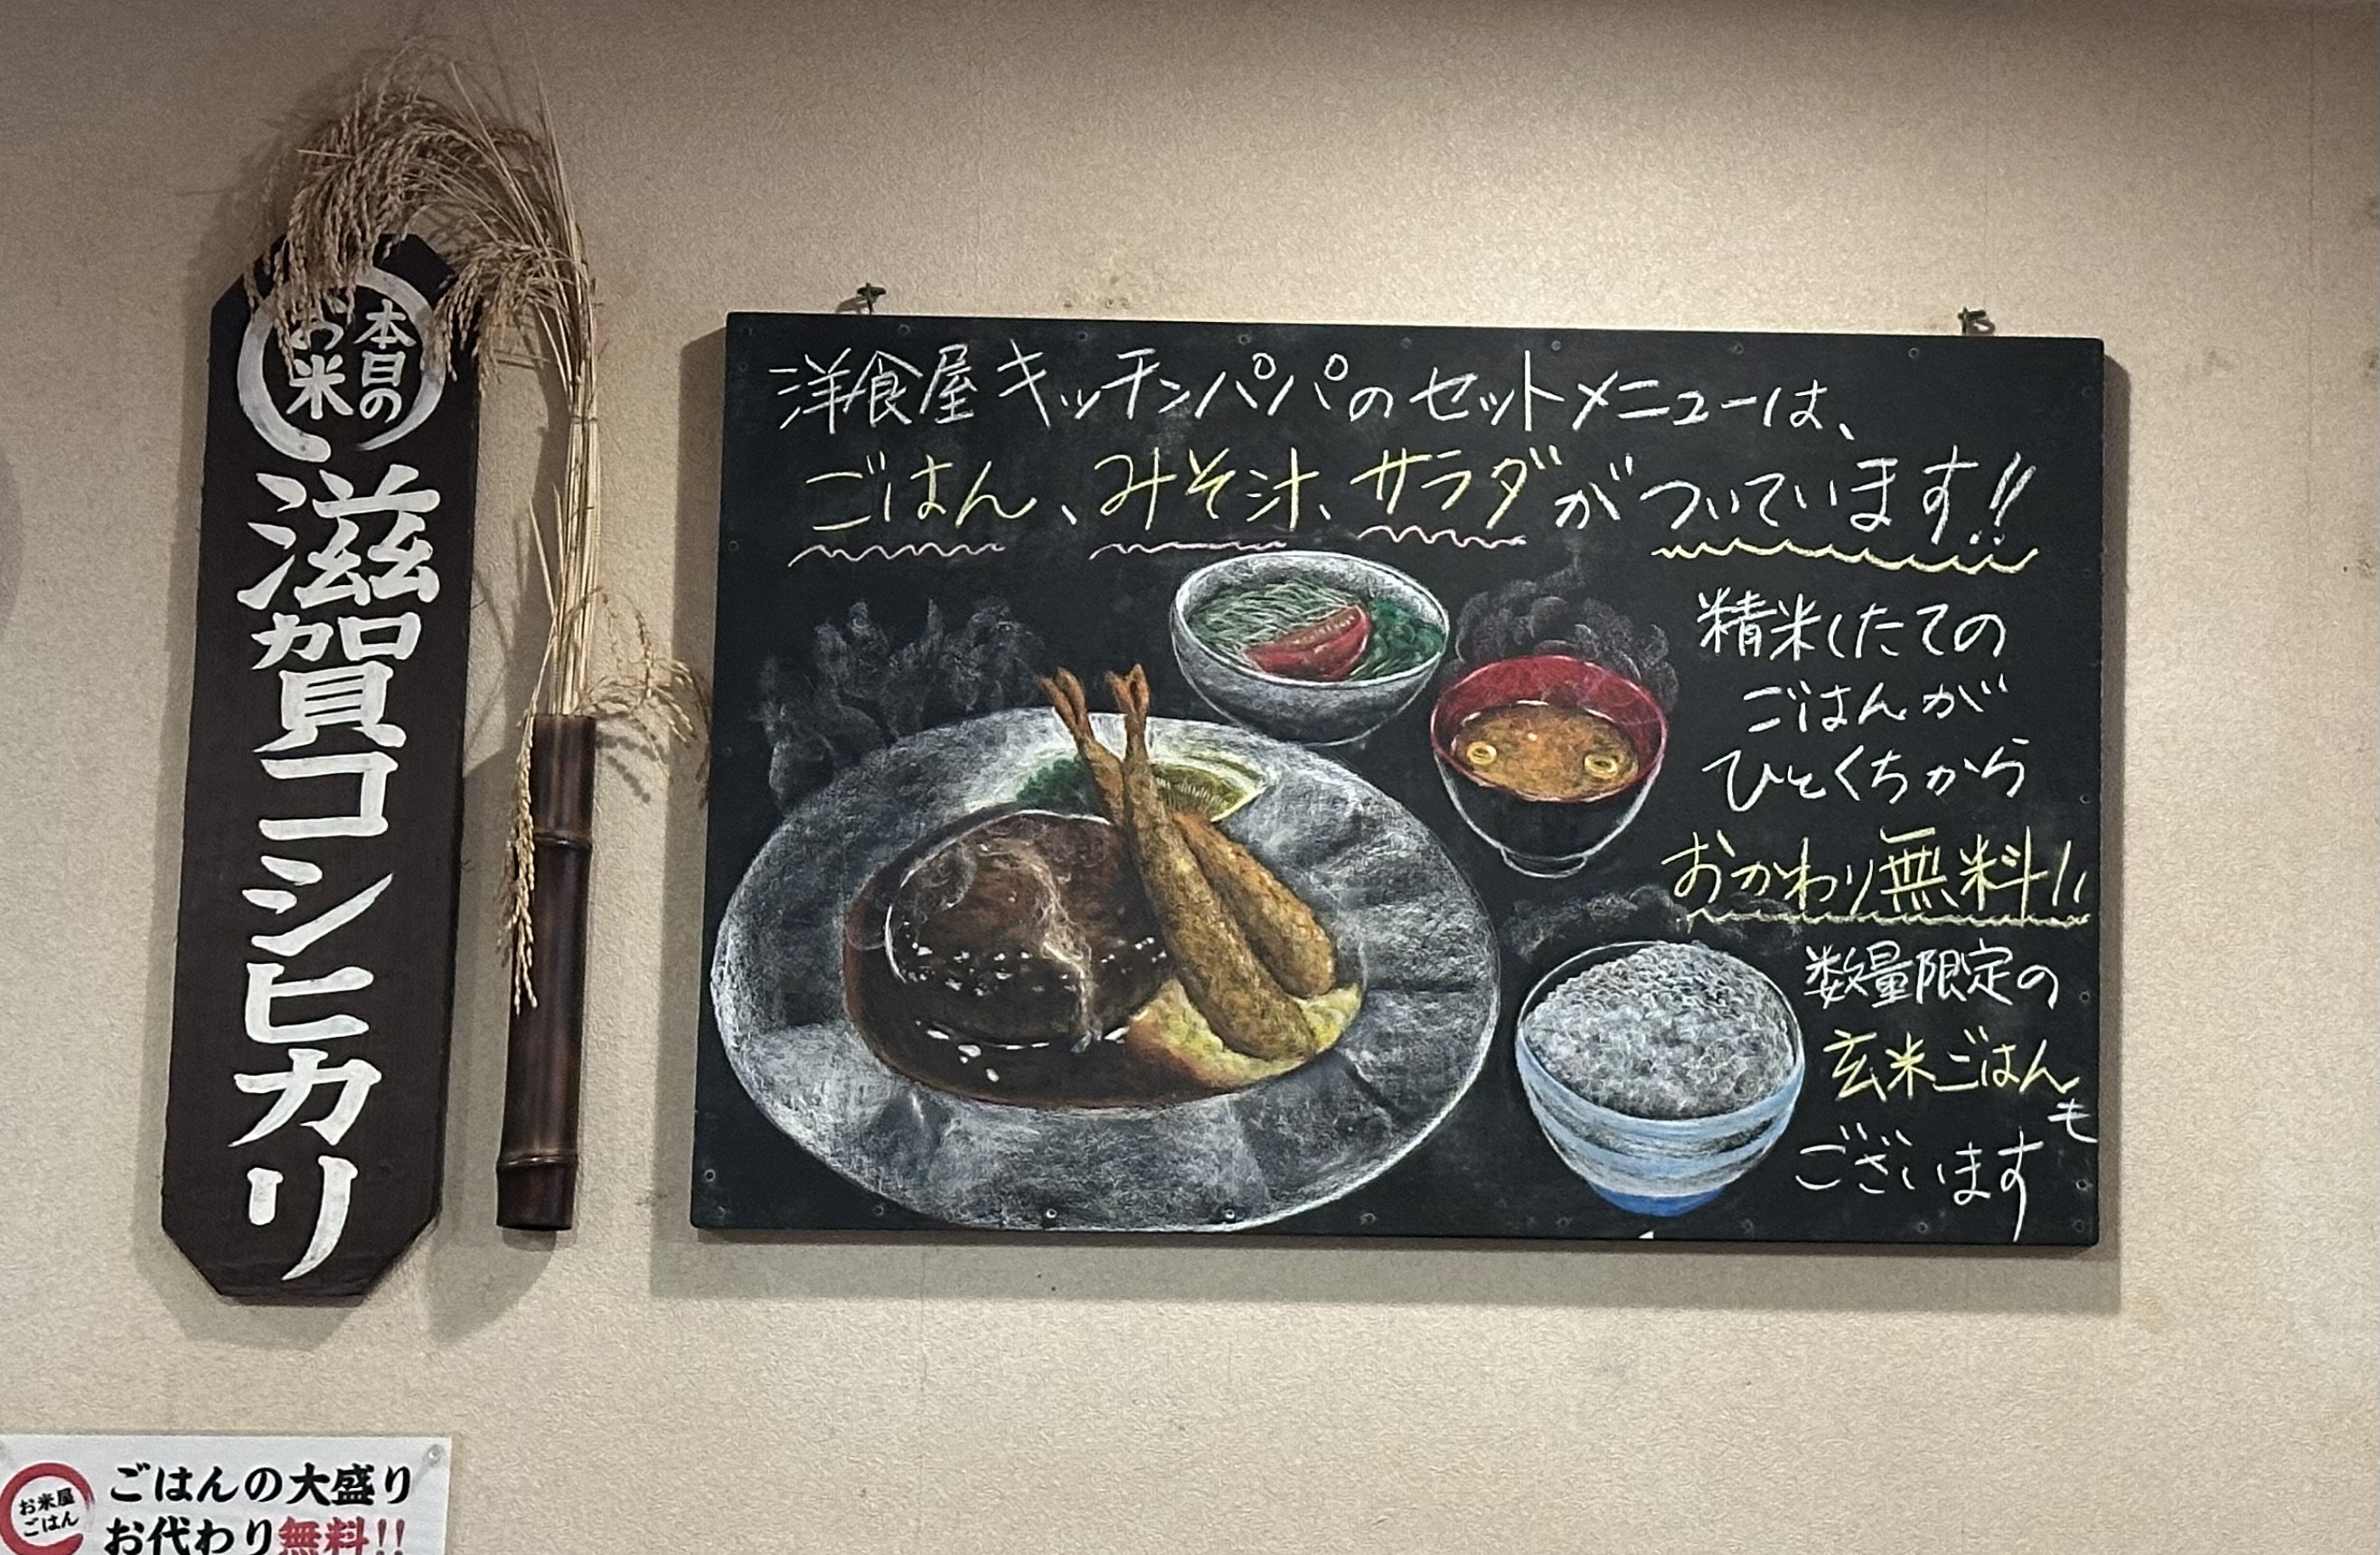 本日の
お米
滋賀コシヒカリ
洋食屋キッチンパパのセットメニューは、
ごはん、みそ汁、サラダがついています!!
精米したての
ごはんが
ひとくちから
おかわり無料!!
数量限定の
玄米ごはんも
ございます
お米屋
ごはん
ごはんの大盛り
お代わり無料!!